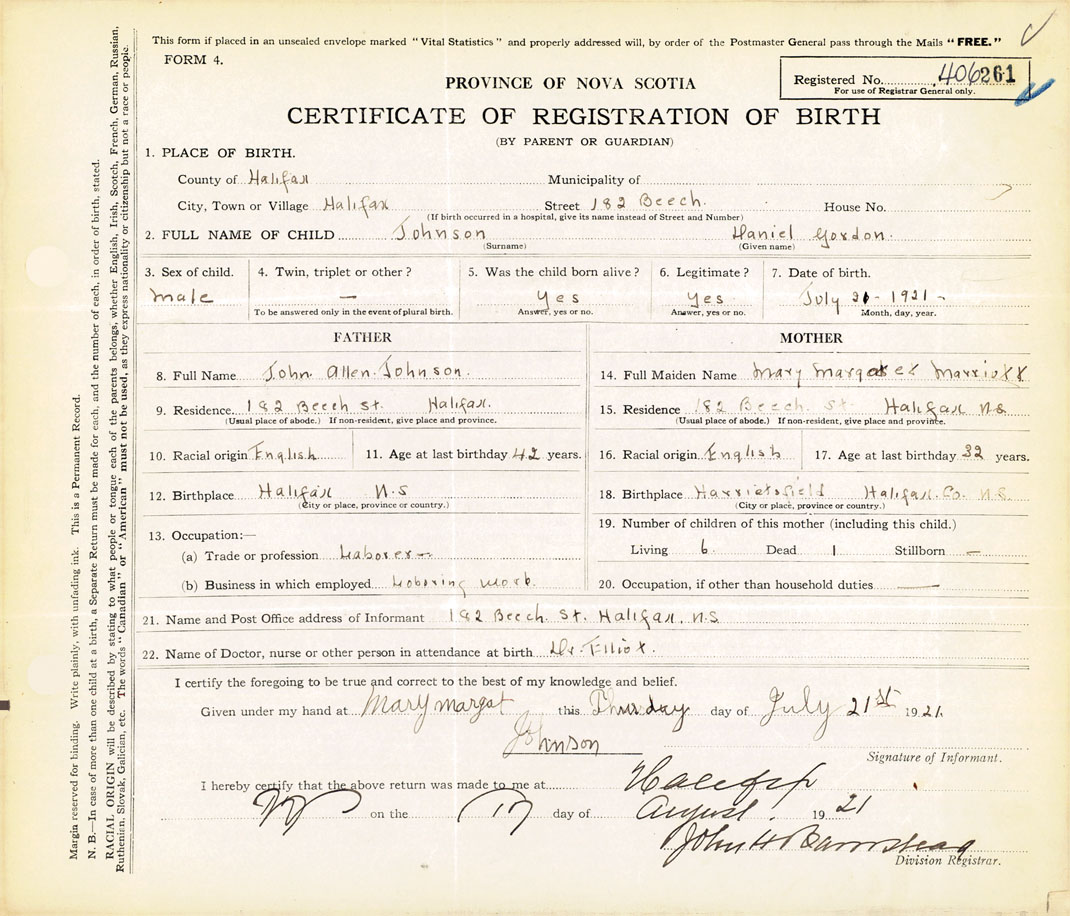 This form if placed in an unsealed envelope marked "Vital Statistics" and properly addressed will, by order of the Postmaster General pass through the Mails "FREE."
FORM 4.
Registered No. 406261
For use of Registrar General only.
PROVINCE OF NOVA SCOTIA
CERTIFICATE OF REGISTRATION OF BIRTH
(BY PARENT OR GUARDIAN)
1. PLACE OF BIRTH.
County of Halifax Municipality of
City, Town or Village Halifax Street 182 Beech. House No.
(If birth occurred in a hospital, give its name instead of Street and Number)
2. FULL NAME OF CHILD Johnson Daniel Gordon.
(Surname) (Given name)
3. Sex of child. 4. Twin, triplet or other? 5. Was the child born alive? 6. Legitimate? 7. Date of birth.
male — Yes Yes July 21 - 1921 -
To be answered only in the event of plural birth. Answer, yes or no. Answer, yes or no. Month, day, year.
FATHER MOTHER
8. Full Name John Allen Johnson. 14. Full Maiden Name Mary Margaret Marriott
9. Residence 182 Beech St. Halifax. 15. Residence 182 Beech. St. Halifax N.S
(Usual place of abode.) If non-resident, give place and province. (Usual place of abode.) If non-resident, give place and province.
10. Racial origin English 11. Age at last birthday 42 years. 16. Racial origin English 17. Age at last birthday 32 years.
12. Birthplace Halifax N.S 18. Birthplace Harrietsfield Halifax. Co. N.S.
(City or place, province or country.) (City or place, province or country.)
19. Number of children of this mother (including this child.)
13. Occupation:—
(a) Trade or profession Laborer — Living 6. Dead 1 Stillborn —
(b) Business in which employed Laboring work. 20. Occupation, if other than household duties —
21. Name and Post Office address of Informant 182 Beech. St. Halifax. N.S
22. Name of Doctor, nurse or other person in attendance at birth Dr. Elliot.
I certify the foregoing to be true and correct to the best of my knowledge and belief.
Given under my hand at Mary margat this Thursday day of July 21st 1921.
Johnson
Signature of Informant.
I hereby certify that the above return was made to me at Halifax
on the 17 day of August. 1921
John H Barnstead
Division Registrar.
Margin reserved for binding. Write plainly, with unfading ink. This is a Permanent Record.
N. B.—In case of more than one child at a birth, a Separate Return must be made for each, and the number of each, in order of birth, stated.
RACIAL ORIGIN will be described by stating to what people or tongue each of the parents belongs, whether English, Irish, Scotch, French, German, Russian,
Ruthenian, Slovak, Galician, etc. The words "Canadian" or "American" must not be used, as they express nationality or citizenship but not a race or people.